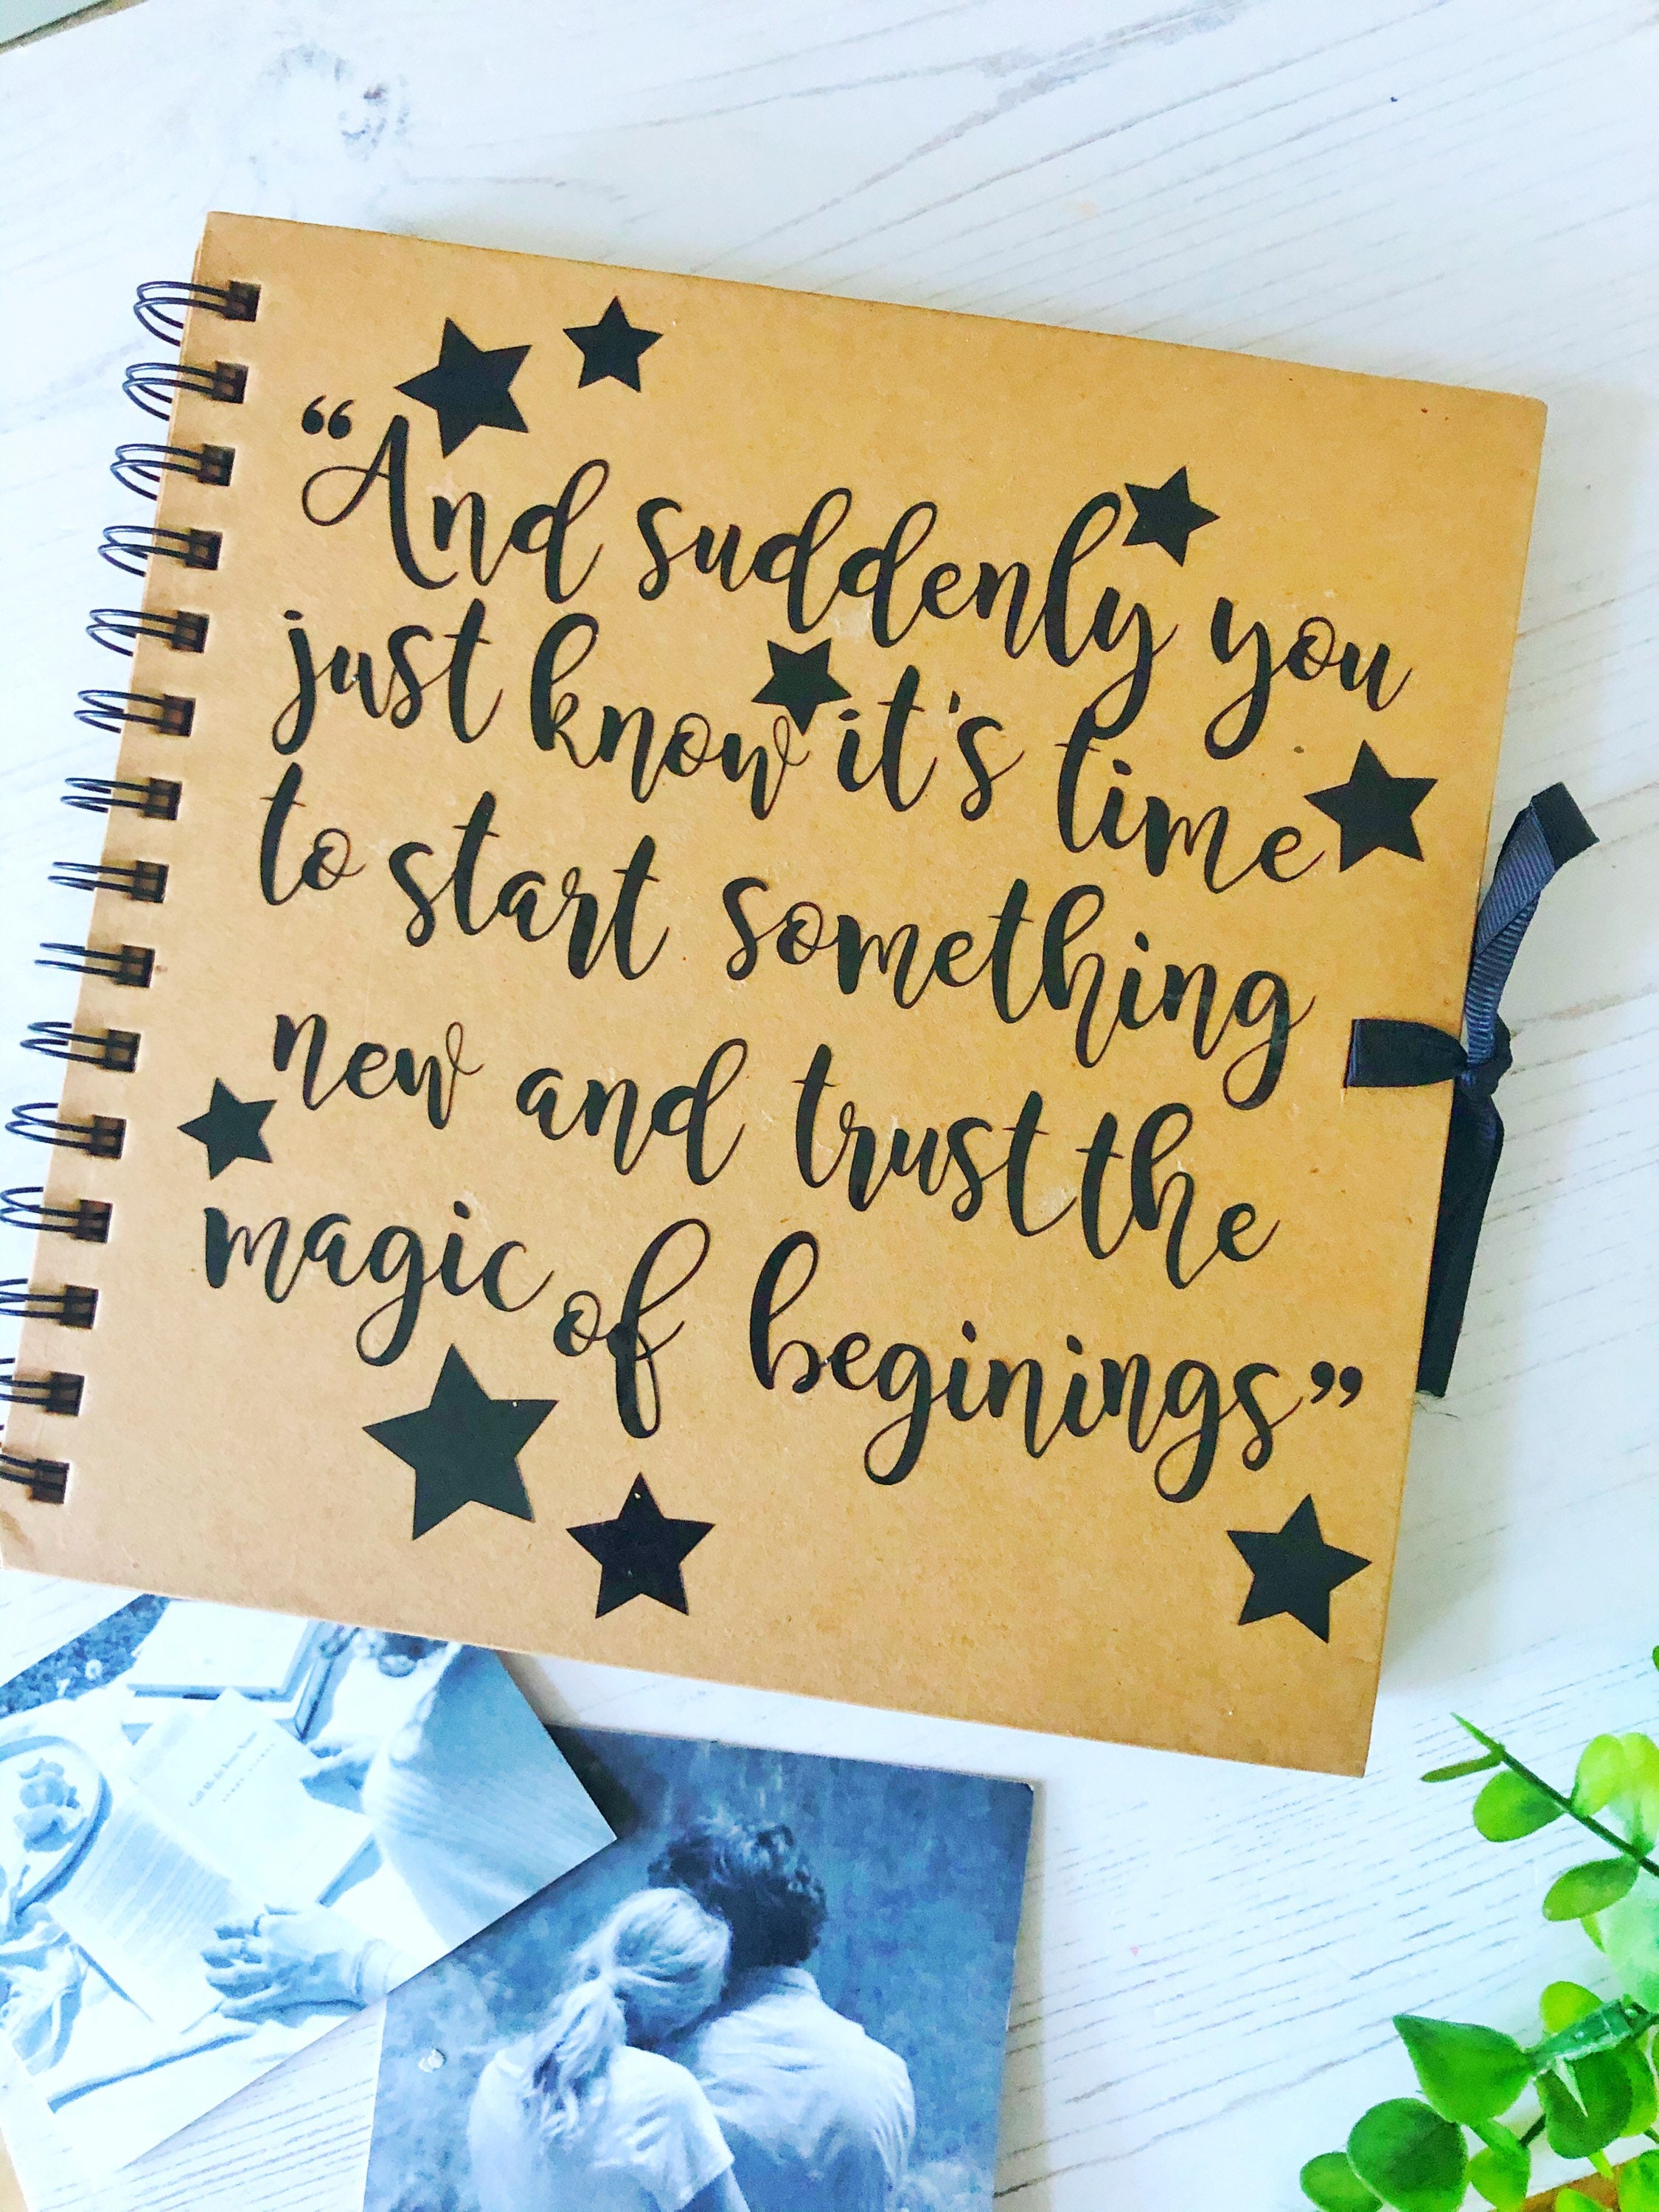 “And suddenly you
just know it's time
to start something
new and trust the
magic of beginings”